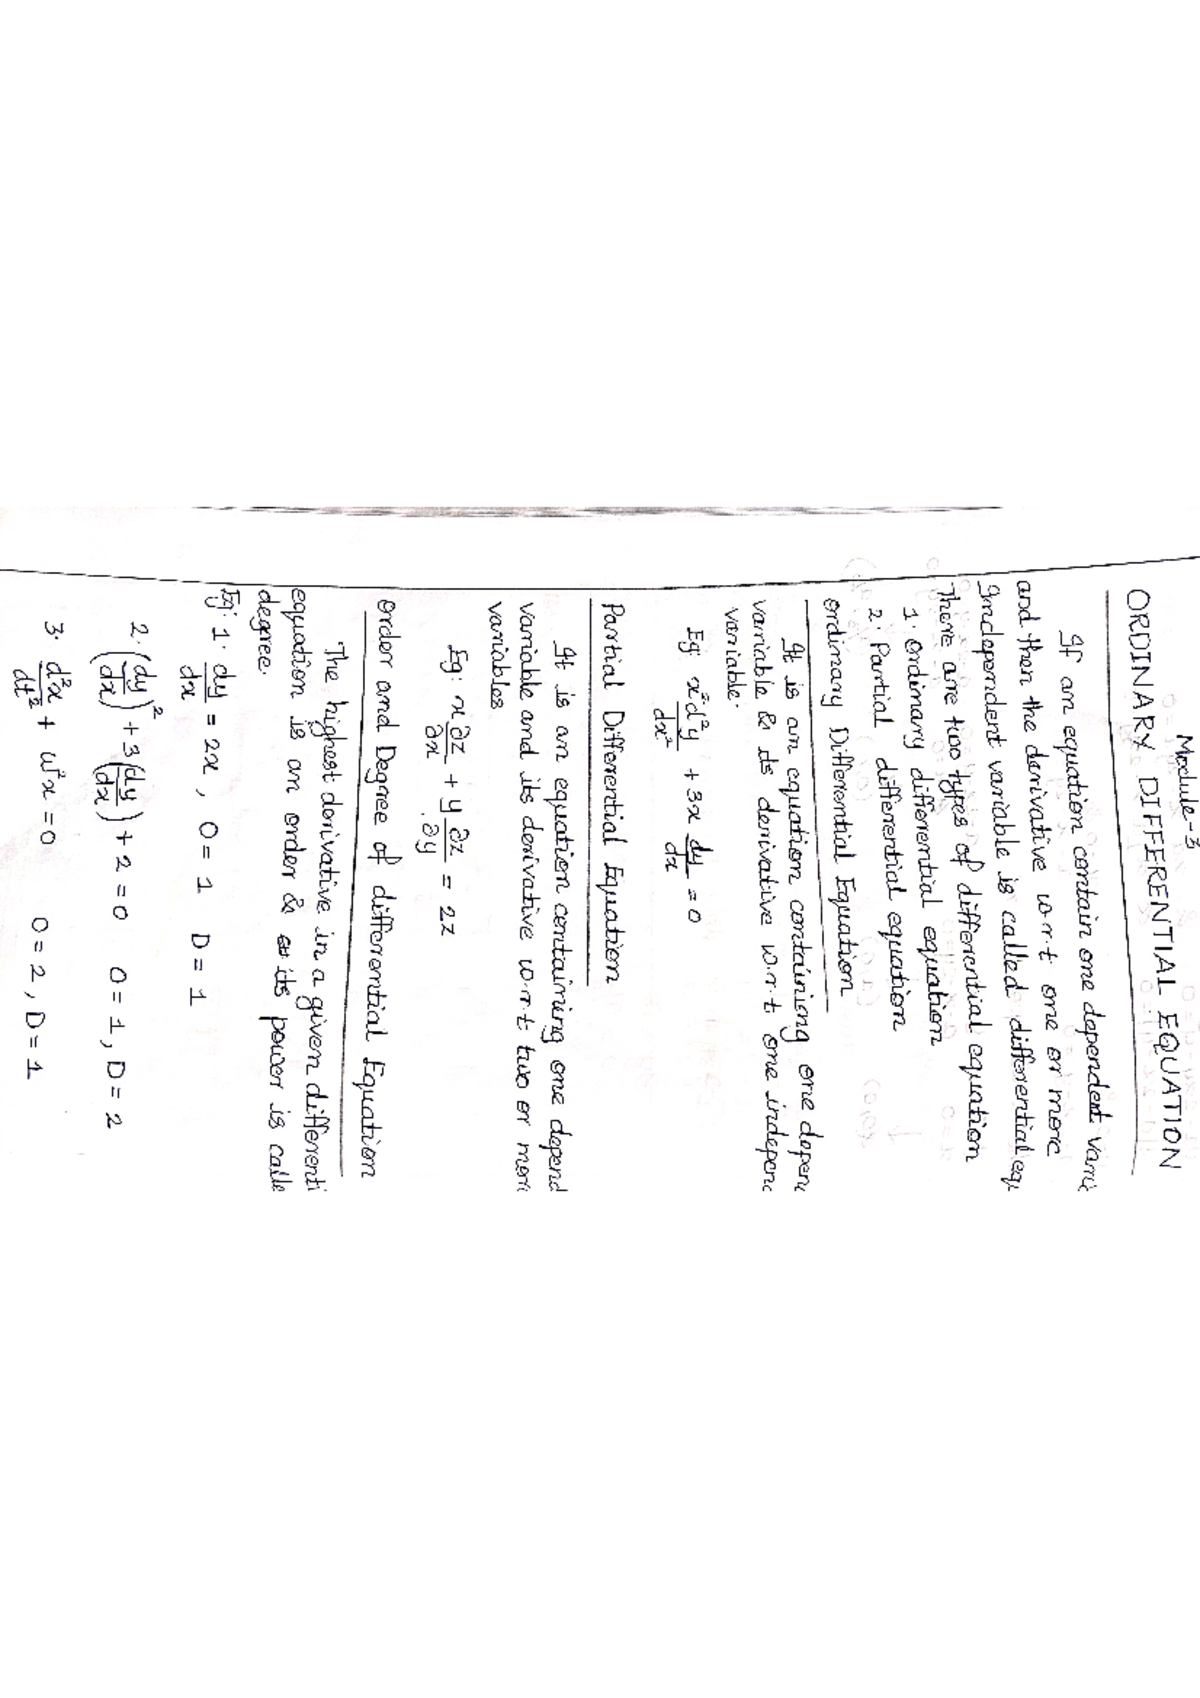 Module-3
ORDINARY DIFFERENTIAL EQUATION
If an equation contain one dependent
and then the derivative w.r.t one or more
Independent variable is called differential
There are two types of differential equation
1. ordinary differential equation
2. Partial differential equation
ordinary Differential Equation
It is an equation containing one
variable & its derivative w.r.t. one
variable.
Eg: x²d²y/dx² + 3x dy/dx = 0
Partial Differential Equation
It is an equation containing one depend
variable and its derivative w.r.t. two or more
variables
Eg: x ∂z/∂x + y ∂z/∂y = 2z
order and Degree of differential Equation
The highest derivative in a given differenti
equation is an order & its power is calle
degree.
Eg: 1. dy/dx = 2x, O=1 D=1
2. (dy/dx)² + 3(dy/dx) + 2 = 0 O=1, D=2
3. d²x/dt² + w²x = 0 O=2, D=1